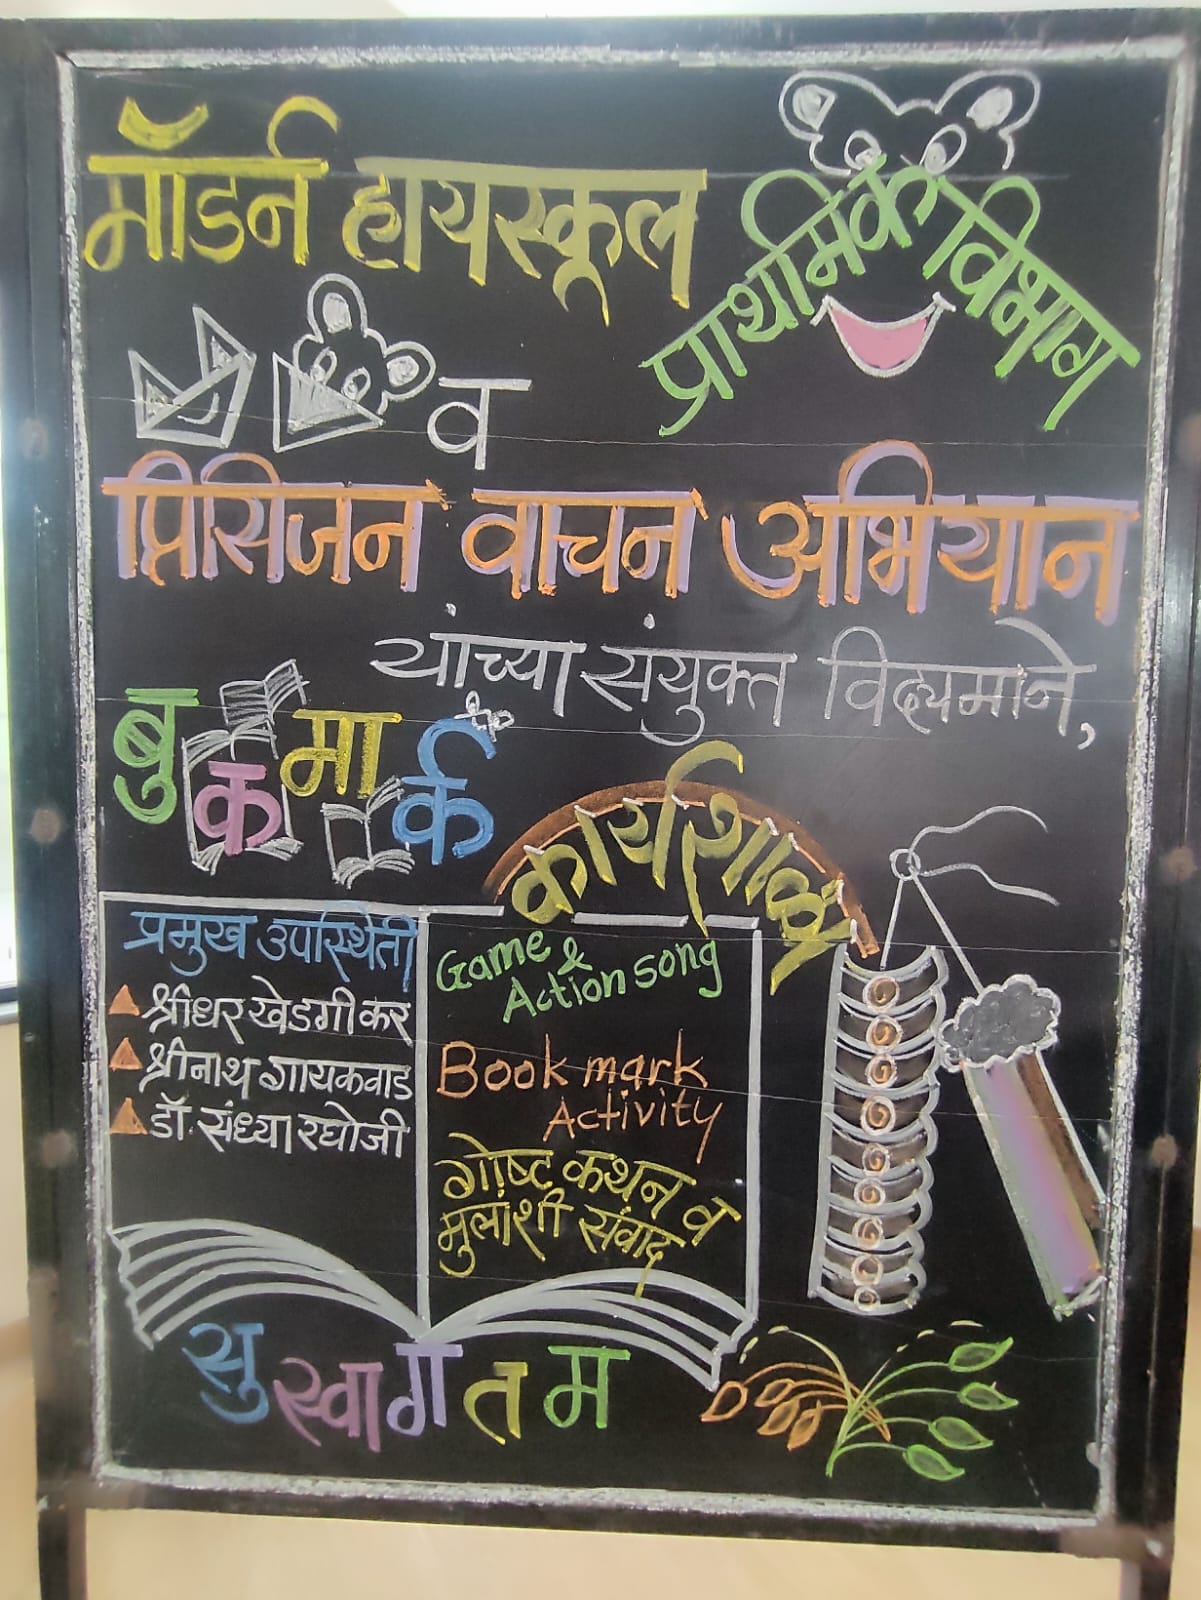 मॉडर्न हायस्कूल
प्राथमिक विभाग
व
प्रिसिजन वाचन अभियान
यांच्या संयुक्त विद्यमाने,
बुकमार्क
कार्यशाळा
प्रमुख उपस्थिती
श्रीधर खेडगीकर
श्रीनाथ गायकवाड
डॉ. संध्या रघोजी
Game &
Action song
Book mark
Activity
गोष्ट कथन व
मुलांशी संवाद
सुस्वागतम